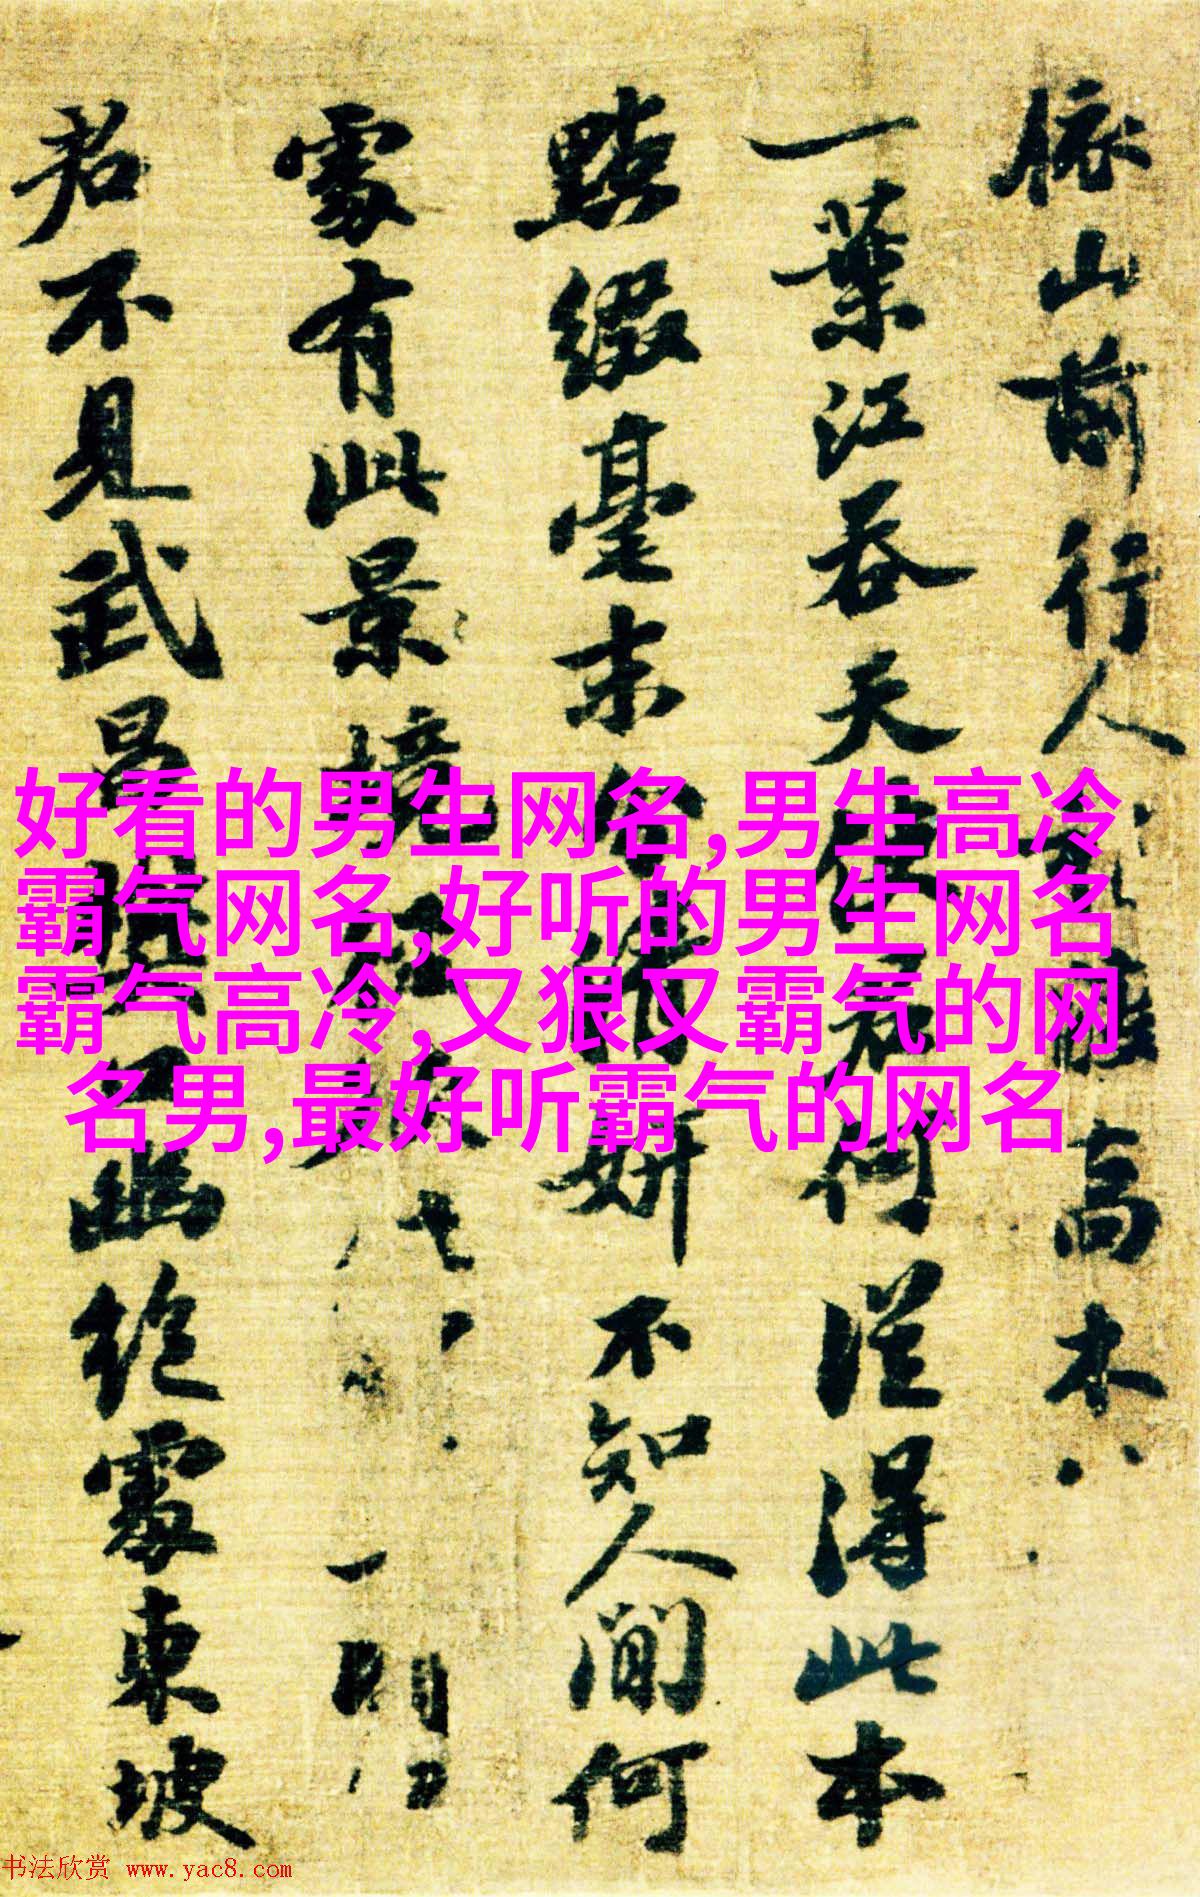 依山前行人高木
一葉江吞天使君何從得此本
點綴毫末分清妍不知人間何
處有此景境
君不見武昌樊口幽絕處東坡
好看的男生网名,男生高冷
霸气网名,好听的男生网名
霸气高冷,又狠又霸气的网
名男,最好听霸气的网名
书法欣赏 www.yac8.com